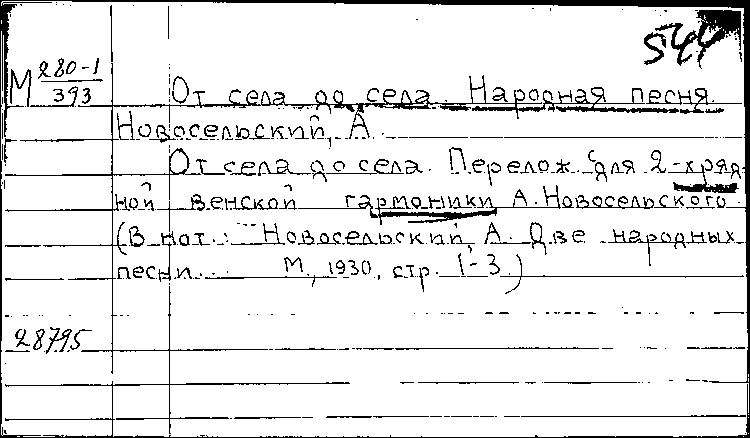 544
М 280-1
393
От села до села. Народная песня.
Новосельский, А.
От села до села. Перелож. для 2-хряд-
ной венской гармоники А. Новосельского.
(В нот.: Новосельский, А. Две народных
песни... М., 1930, стр. 1-3.)
28795